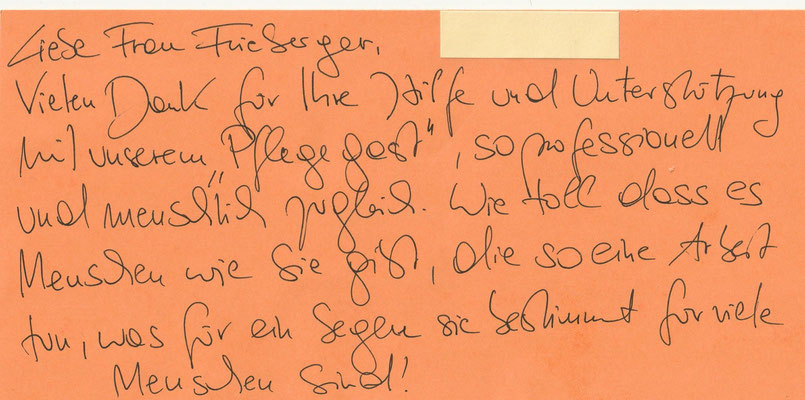 Liebe Frau Frieberger,
Vielen Dank für Ihre Hilfe und Unterstützung
mit unserem „Pflegegast", so professionell
und menschlich zugleich. Wie toll dass es
Menschen wie Sie gibt, die so eine Arbeit
tun, was für ein Segen sie bestimmt für viele
Menschen sind!